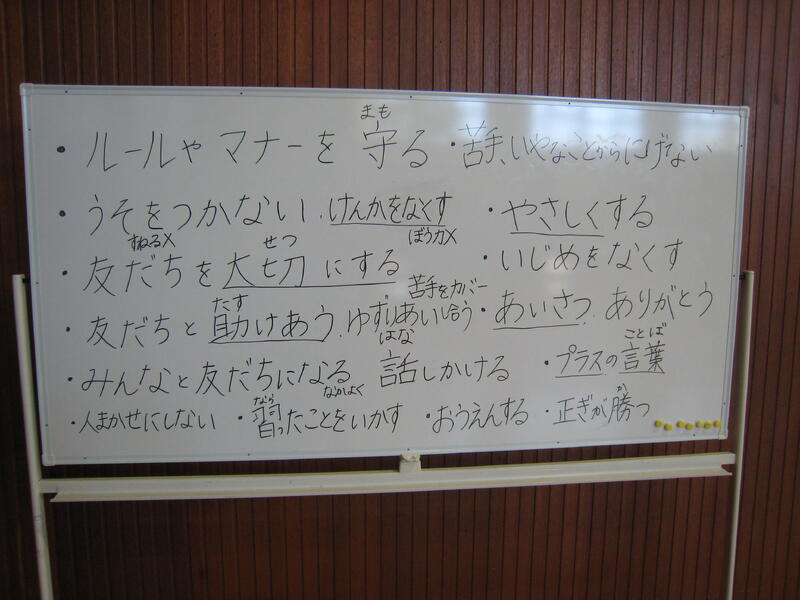 まも
・ルールや マナーを 守る ・苦手、いやなことからにげない
・うそをつかない . けんかをなくす ・やさしくする
すねる× せつ ぼう力×
・友だちを 大切 にする ・いじめをなくす
たす 苦手をカバー
・友だちと 助けあう . ゆずりあい 合う ・あいさつ . ありがとう
はな ことば
・みんなと友だちになる 話しかける ・プラスの言葉
なら なかよく か
・人まかせにしない ・習ったことをいかす ・おうえんする ・正ぎが勝つ